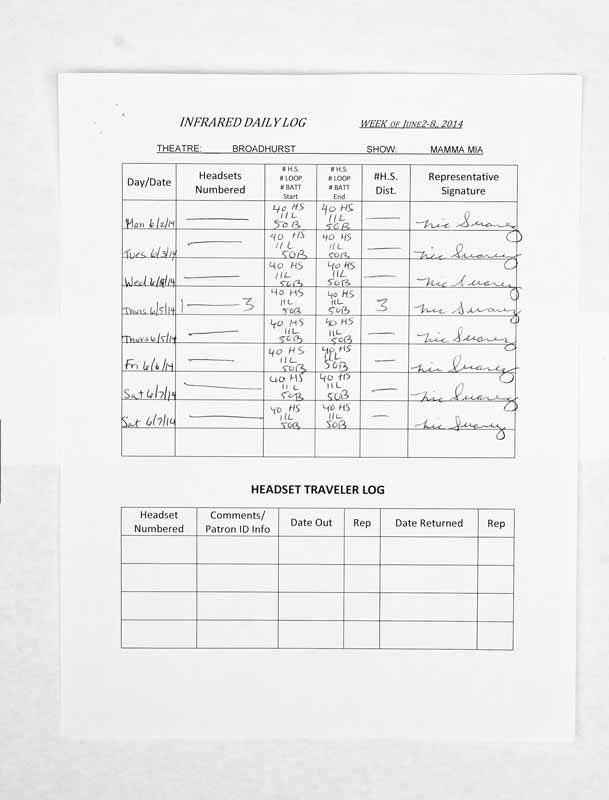 INFRARED DAILY LOG WEEK OF JUNE2-8, 2014
THEATRE: BROADHURST SHOW: MAMMA MIA
Day/Date Headsets Numbered # H.S. # LOOP # BATT Start # H.S. # LOOP # BATT End #H.S. Dist. Representative Signature
Mon 6/2/14 — 40 HS 11L 50B 40 HS 11L 50B — Nic Suarez
Tues 6/3/14 — 40 HS 11L 50B 40 HS 11L 50B — Nic Suarez
Wed 6/4/14 — 40 HS 11L 50B 40 HS 11L 50B — Nic Suarez
Thurs 6/5/14 1 — 3 40 HS 11L 50B 40 HS 11L 50B 3 Nic Suarez
Thurs 6/5/14 — 40 HS 11L 50B 40 HS 11L 50B — Nic Suarez
Fri 6/6/14 — 40 HS 11L 50B 40 HS 11L 50B — Nic Suarez
Sat 6/7/14 — 40 HS 11L 50B 40 HS 11L 50B — Nic Suarez
Sat 6/7/14 — 40 HS 11L 50B 40 HS 11L 50B — Nic Suarez
HEADSET TRAVELER LOG
Headset Numbered Comments/ Patron ID Info Date Out Rep Date Returned Rep